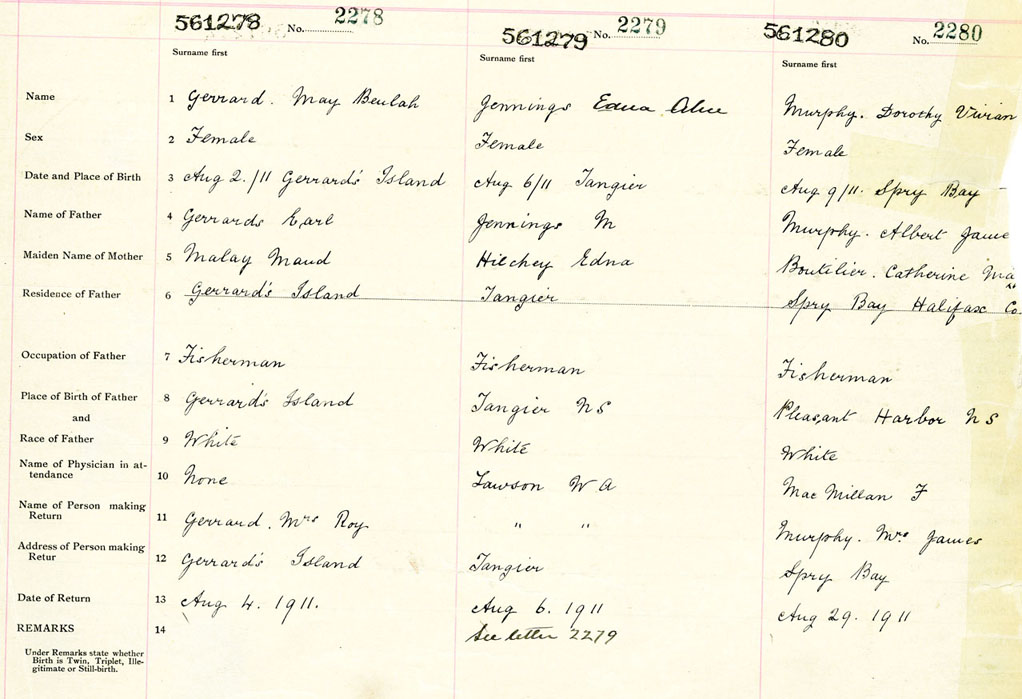 561278 No. 2278 561279 No. 2279 561280 No. 2280
Surname first Surname first Surname first
Name 1 Gerrard. May Beulah Jennings Edna Alice Murphy. Dorothy Vivian
Sex 2 Female Female Female
Date and Place of Birth 3 Aug 2./11 Gerrard's Island Aug 6/11 Tangier Aug 9/11. Spry Bay
Name of Father 4 Gerrards Earl Jennings M Murphy. Albert Jame
Maiden Name of Mother 5 Malay Maud Hilchey Edna Boutilier. Catherine Ma
Residence of Father 6 Gerrard's Island Tangier Spry Bay Halifax Co.
Occupation of Father 7 Fisherman Fisherman Fisherman
Place of Birth of Father 8 Gerrard's Island Tangier N S Pleasant Harbor N S
and
Race of Father 9 White White White
Name of Physician in at-
tendance 10 None Lawson W A Mac Millan F
Name of Person making
Return 11 Gerrard. Mrs Roy " " Murphy. Mrs James
Address of Person making
Retur 12 Gerrard's Island Tangier Spry Bay
Date of Return 13 Aug 4. 1911. Aug 6. 1911 Aug 29. 1911
REMARKS 14 See letter 2279
Under Remarks state whether
Birth is Twin, Triplet, Ille-
gitimate or Still-birth.